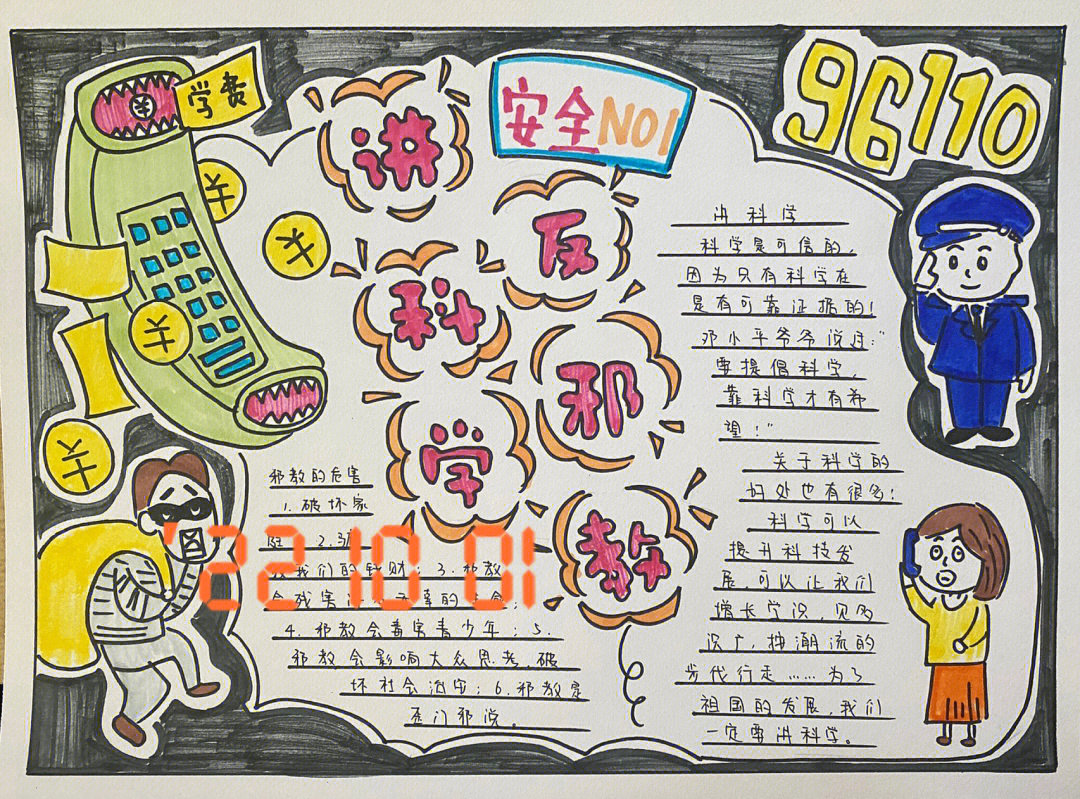 学费
讲科学
反邪教
安全NO1
96110
讲科学
科学是可信的,
因为只有科学在
是有可靠证据的!
邓小平爷爷说过:“
要提倡科学,
靠科学才有希
望!”
关于科学的
好处也有很多!
科学可以
提升科技发
展,可以让我们
增长学识,见多
识广,独潮流的
步代行走……为了
祖国的发展,我们
一定要讲科学。
邪教的危害
1.破坏家
庭 2.骗
我们的钱财;3.邪教
会残害
4.邪教会毒害青少年;5.
邪教会影响大众思考,破
坏社会治安;6.邪教是
歪门邪说。
'22 10 01